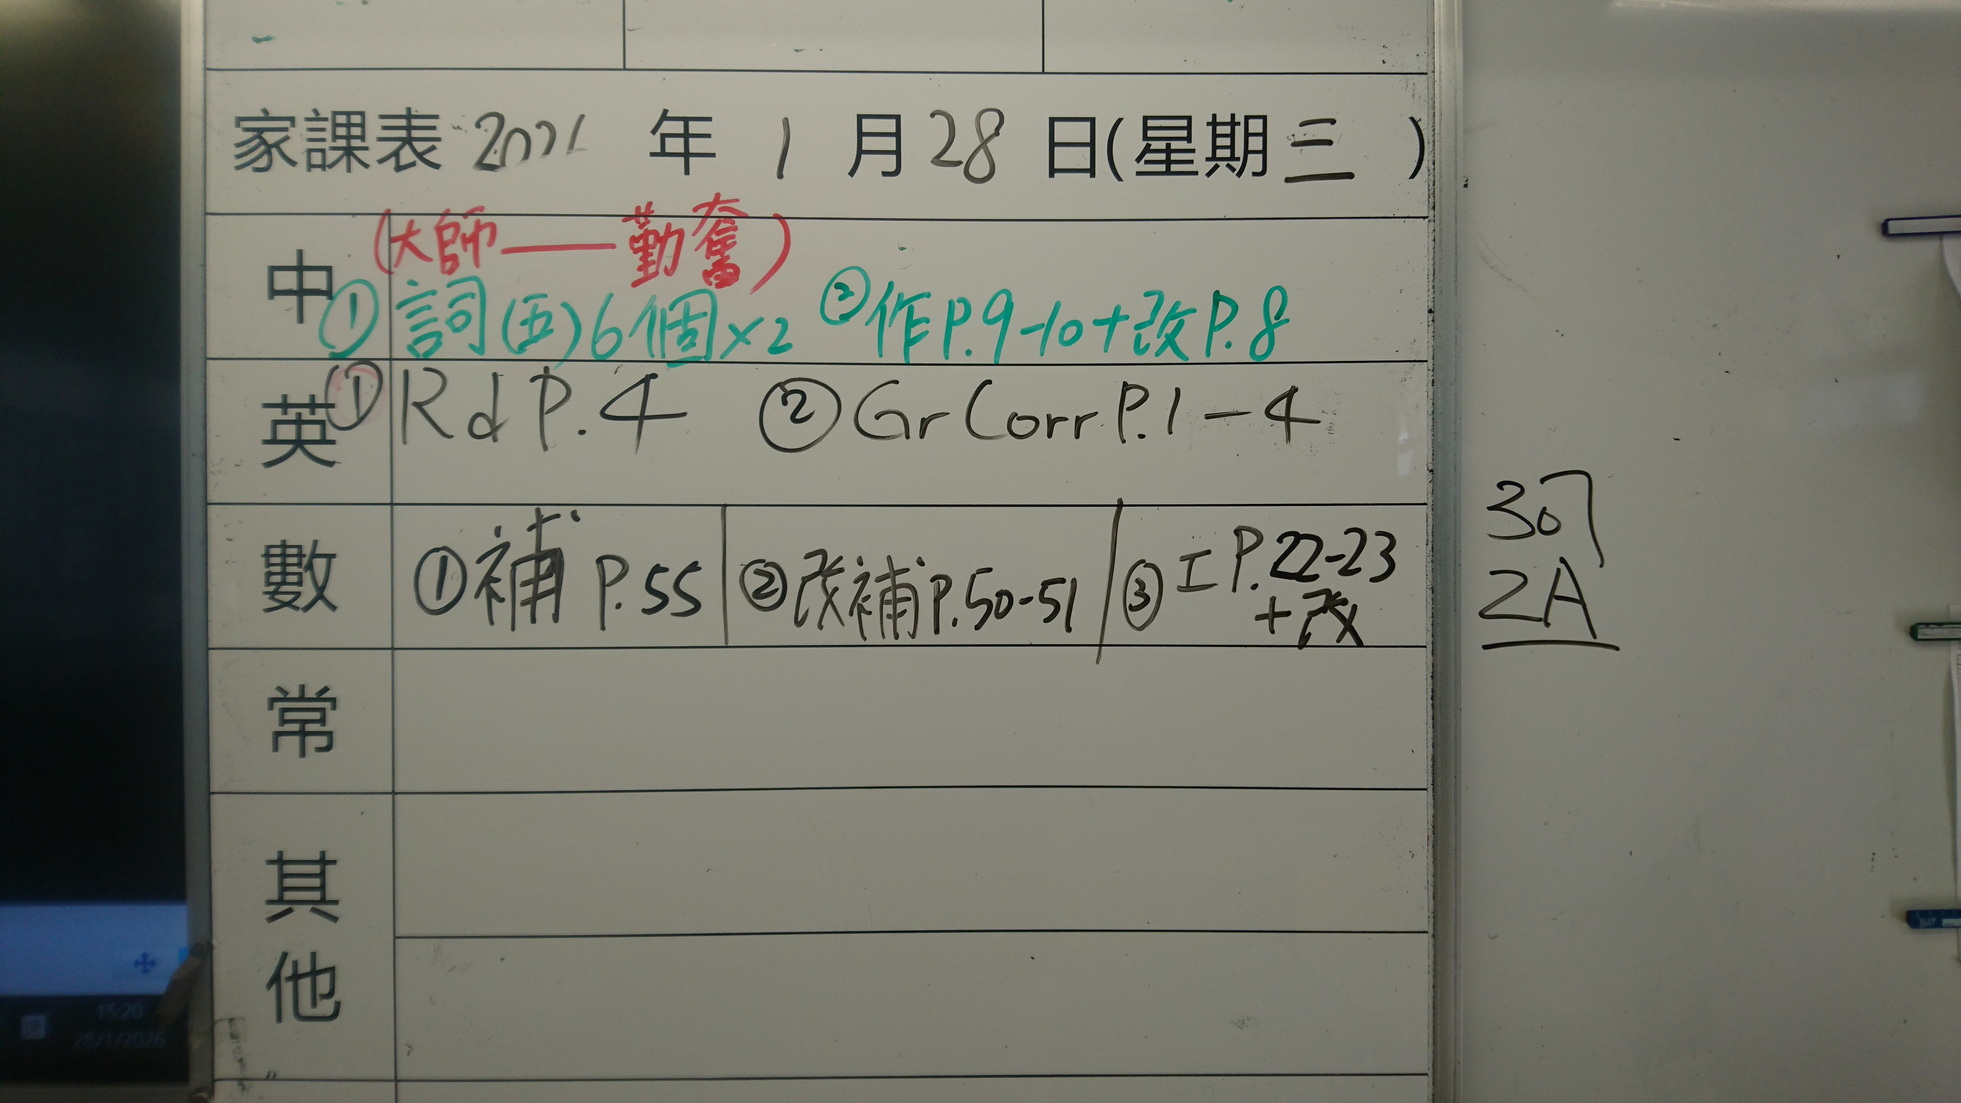 家課表 2026 年 1 月 28 日(星期三)
(大師——勤奮)
中 ① 詞(五)6個×2 ② 作P.9-10+改P.8
英 ① Rd P.4 ② Gr Corr P.1-4
數 ① 補 P.55 ② 改補P.50-51 ③ 工P.22-23
+改
307
2A
常
其他
15:20
28/1/2026